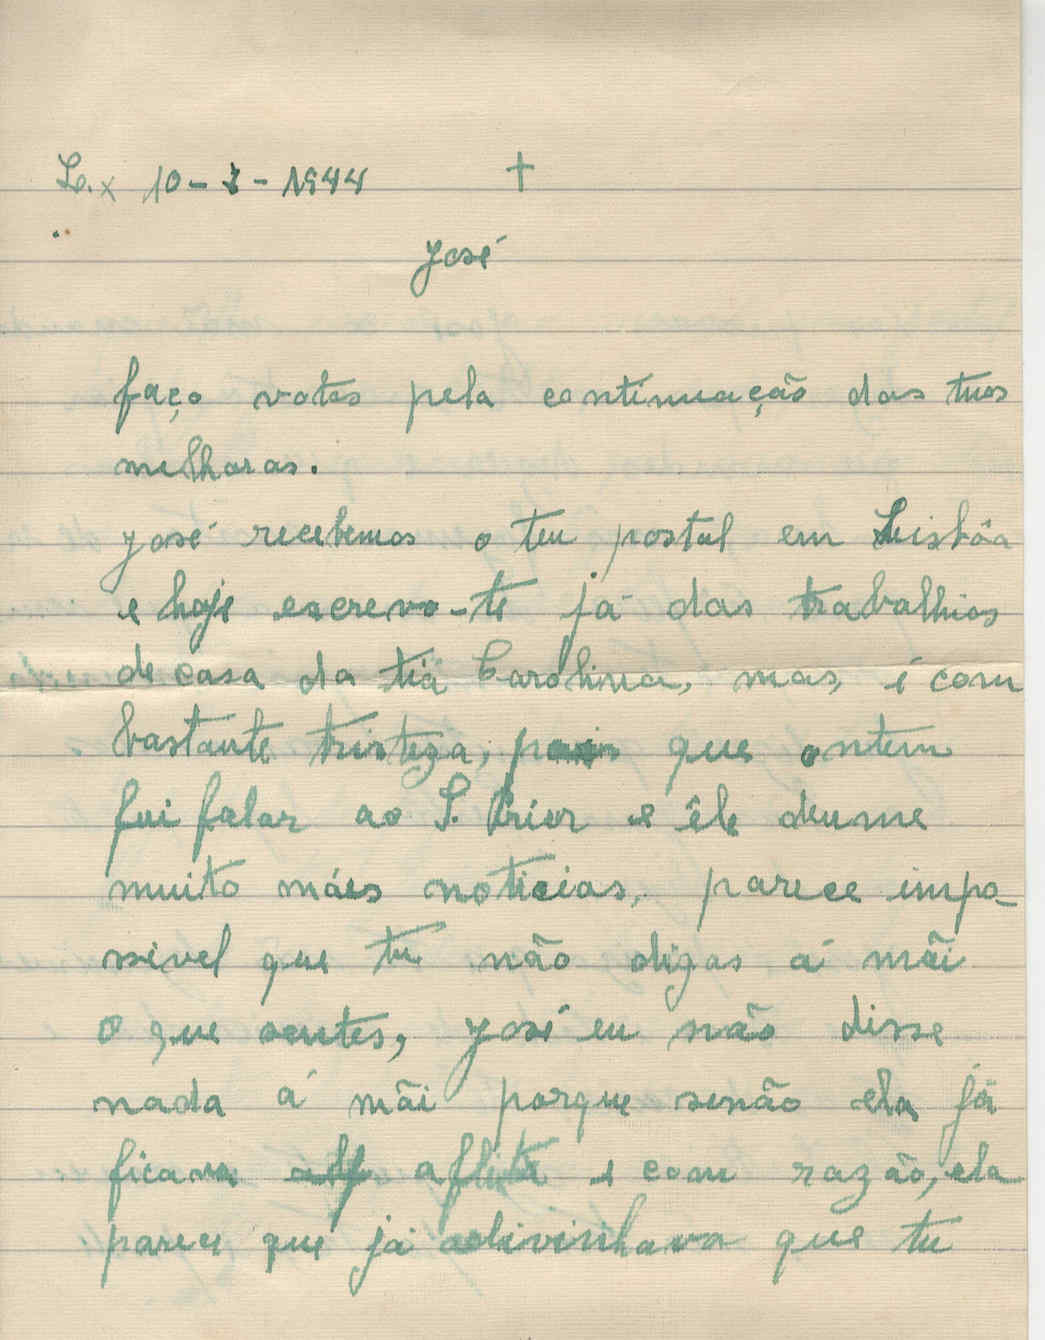 Lx 10-7-1944 +
José
faço votos pela continuação das tuas
melharas.
José recebemos o teu postal em Lisbôa
e hoje escrevo-te já das trabalhios
de casa da tiá Carolina, mas, é com
bastante tristeza, pois que ontem
fui falar ao S. Prior e êle deume
muito máes noticias, parece impo-
sivel que tu não digas á mãi
o que sentes, José eu não disse
nada á mãi porque senão ela já
ficava aflita e com razão, ela
parece que já adivinhava que tu